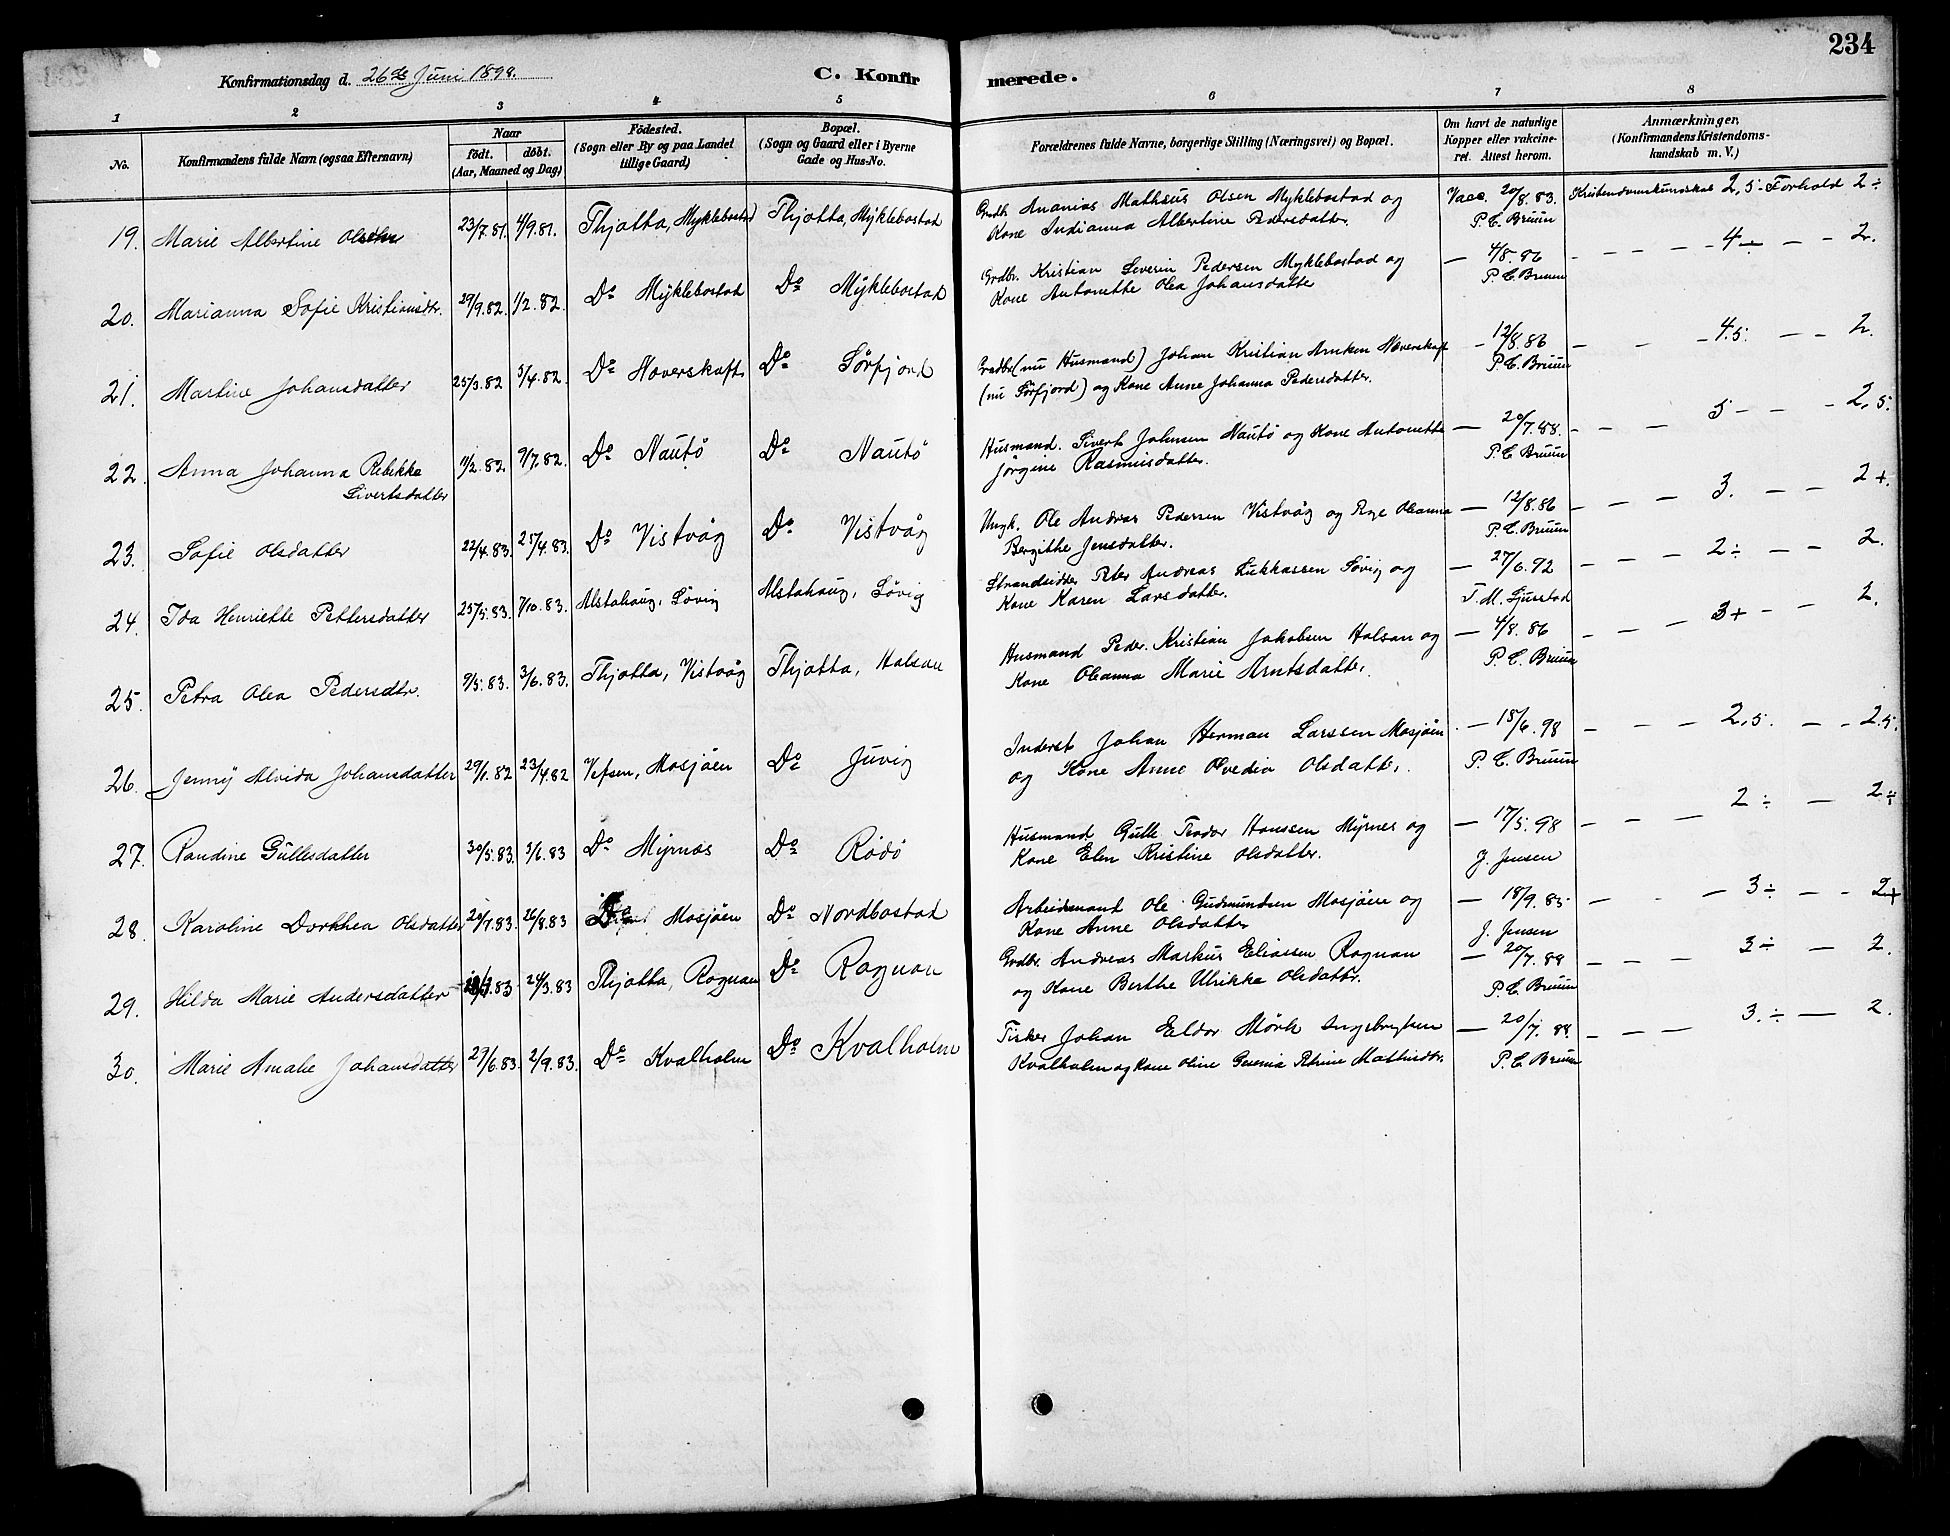 234
Konfirmationsdag d. 26de Juni 1898.
C. Konfirmerede.
1 2 3 4 5 6 7 8
No.
Konfirmandens fulde Navn (ogsaa Efternavn)
Naar
födt. döbt.
(Aar, Maaned og Dag)
Födested.
(Sogn eller By og paa Landet
tillige Gaard)
Bopæl.
(Sogn og Gaard eller i Byerne
Gade og Hus-No.
Forældrenes fulde Navne, borgerlige Stilling (Næringsvei) og Bopæl.
Om havt de naturlige
Kopper eller vakcine-
ret. Attest herom.
Anmærkninger,
(Konfirmandens Kristendoms-
kundskab m. V.)
19. Marie Albertine 23/7.81. 4/9.81. Thjøtta, Myklebostad Thjøtta, Myklebostad Grdbr. Ananias Mathæus Olsen Myklebostad og Vacc. 20/8.83. Kristendomskundskab 2,5. Forhold 2÷
Kone Indianna Albertine Pedersdatter. P. C. Bruun
20. Marianna Sofie Kristiansdtr. 29/9.82. 1/2.82. Do Myklebostad Do Myklebostad Grdbr. Kristian Severin Pedersen Myklebostad og — 4/8.86 — — — 4÷ — — 2.
Kone Antonette Olea Johansdatter P. C. Bruun
21. Martine Johansdatter 25/3.82 3/4.82. Do Hoverskaft Do Sørfjord Grdbr. (nu Husmand) Johan Kristian Hoverskaft — 12/8.86 — — — 4.5. — — 2.
(nu Sørfjord) og Kone Anne Johanna Pedersdatter. P. C. Bruun
22. Anna Johanna Rebekke 11/2.82. 9/7.82. Do Nautø Do Nautø Husmand. Sivert Johnsen Nautø og Kone Antonette — 20/7.88. — — — 5 — — 2,5.
Sivertsdatter Jørgine Rasmusdatter. P. C. Bruun
23. Sofie Olsdatter 22/4.83. 25/4.83. Do Vistvåg Do Vistvåg Ungk. Ole Andreas Pedersen Vistvåg og Pige Oleanna — 12/8.86 — — — 3. — — 2+.
Bergithe Jensdatter. P. C. Bruun
24. Ida Henriette Pettersdatter 25/5.83. 7/10.83. Alstahaug, Søvig Alstahaug, Søvig Strandsidder Peter Andreas Lukkassen Søvig og — 27/6.92 — — — 2÷ — — 2.
Kone Karen Larsdatter. T. M. Sjurstad
25. Petra Olea Pedersdtr. 9/5.83. 3/6.83. Thjøtta, Vistvåg Thjøtta, Halsan Husmand Peder Kristian Jakobsen Halsan og — 4/8.86 — — — 3+ — — 2.
Kone Oleanna Marie Arntsdatter. P. C. Bruun
26. Jenny Alvida Johansdatter 29/1.82 23/4.82 Vefsen, Mosjøen Do Juvig Inderst Johan Herman Larssen Mosjøen — 18/6.98 — — — 2,5. — — 2.5.
og Kone Anne Ovedia Olsdatter. P. C. Bruun
27. Randine Gullesdatter 30/5.83. 3/6.83 Do Myrnæs Do Rødø Husmand Gulle Teodor Hanssen Myrnes og — 17/5.98 — — — 2÷ — 2÷
Kone Elen Kristine Olsdatter. J. Jensen
28. Karoline Dorthea Olsdatter 20/7.83. 26/8.83 Do Mosjøen Do Nordbostad Arbeidsmand Ole Gudmundsen Mosjøen og — 18/9.85 — — — 3÷ — — 2+
Kone Anne Olsdatter J. Jensen
29. Hilda Marie Andersdatter 24/3.83 Thjøtta, Rognan Do Rognan Grdbr. Andreas Markus Eliassen Rognan — 20/7.88 — — — 3÷ — 2.
og Kone Berthe Ulrikke Olsdatter. P. C. Bruun
30. Marie Amalie Johansdatter 27/6.83. 2/9.83. Do Kvalholm Do Kvalholm Fisker Johan Eldor Mørk Ingebrigtsen — 20/7.88. — — — 3.÷ — 2.
Kvalholm og Kone Oline Petrine Mathisdtr. P. C. Bruun